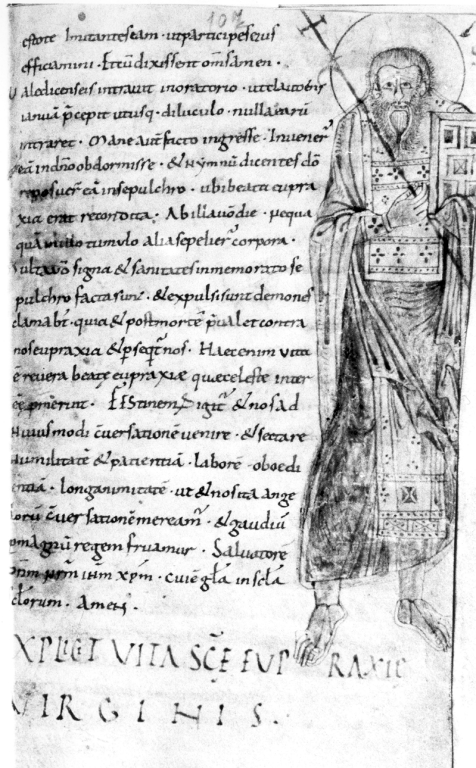 107
estote Imitantes eam . ut participes eius
efficiamini . Et cu dixissent oms amen .
intravit in oratorio . ut clauderet
ianua p̄cepit utiusq; . diluculo . nulla earū
intraret . Mane autē facto ingresse . Invenerꝰ
eā in dn̄o obdormisse . & hymnū dicentes dō
reposuerꝰ eā in sepulchro . ubi beata eupra
xia erat recondita . Ab illa v̄o die . nequa
quā in illo tumulo alia sepelierꝰ corpora .
Multa v̄o signa & sanitates in memorato se
pulchro facta sunt . & expulsi sunt demones
clamabt̄ . quia & post mortē p̄valet contra
nos eupraxia & p̄seqtꝰ nos . Haec enim vita
ē revera beate eupraxiæ quæ celeste inter
Festinemꝰ igitꝰ & nos ad
huiusmodi c̄versationē venire . & sectare
humilitatē & patientiā . laborē . oboedi
entiā . longanimitatē . ut & nos ita ange
lorū c̄versationē mereamꝰ . & gaudiū
magnū regem fruamur . Salvatorē
dn̄m nr̄m ih̄m xp̄m . cui ē gl̄a in scl̄a
scl̄orum . Amen .
XPLICIT VITA SC̄E EUP RAXIE
VIRGINIS .